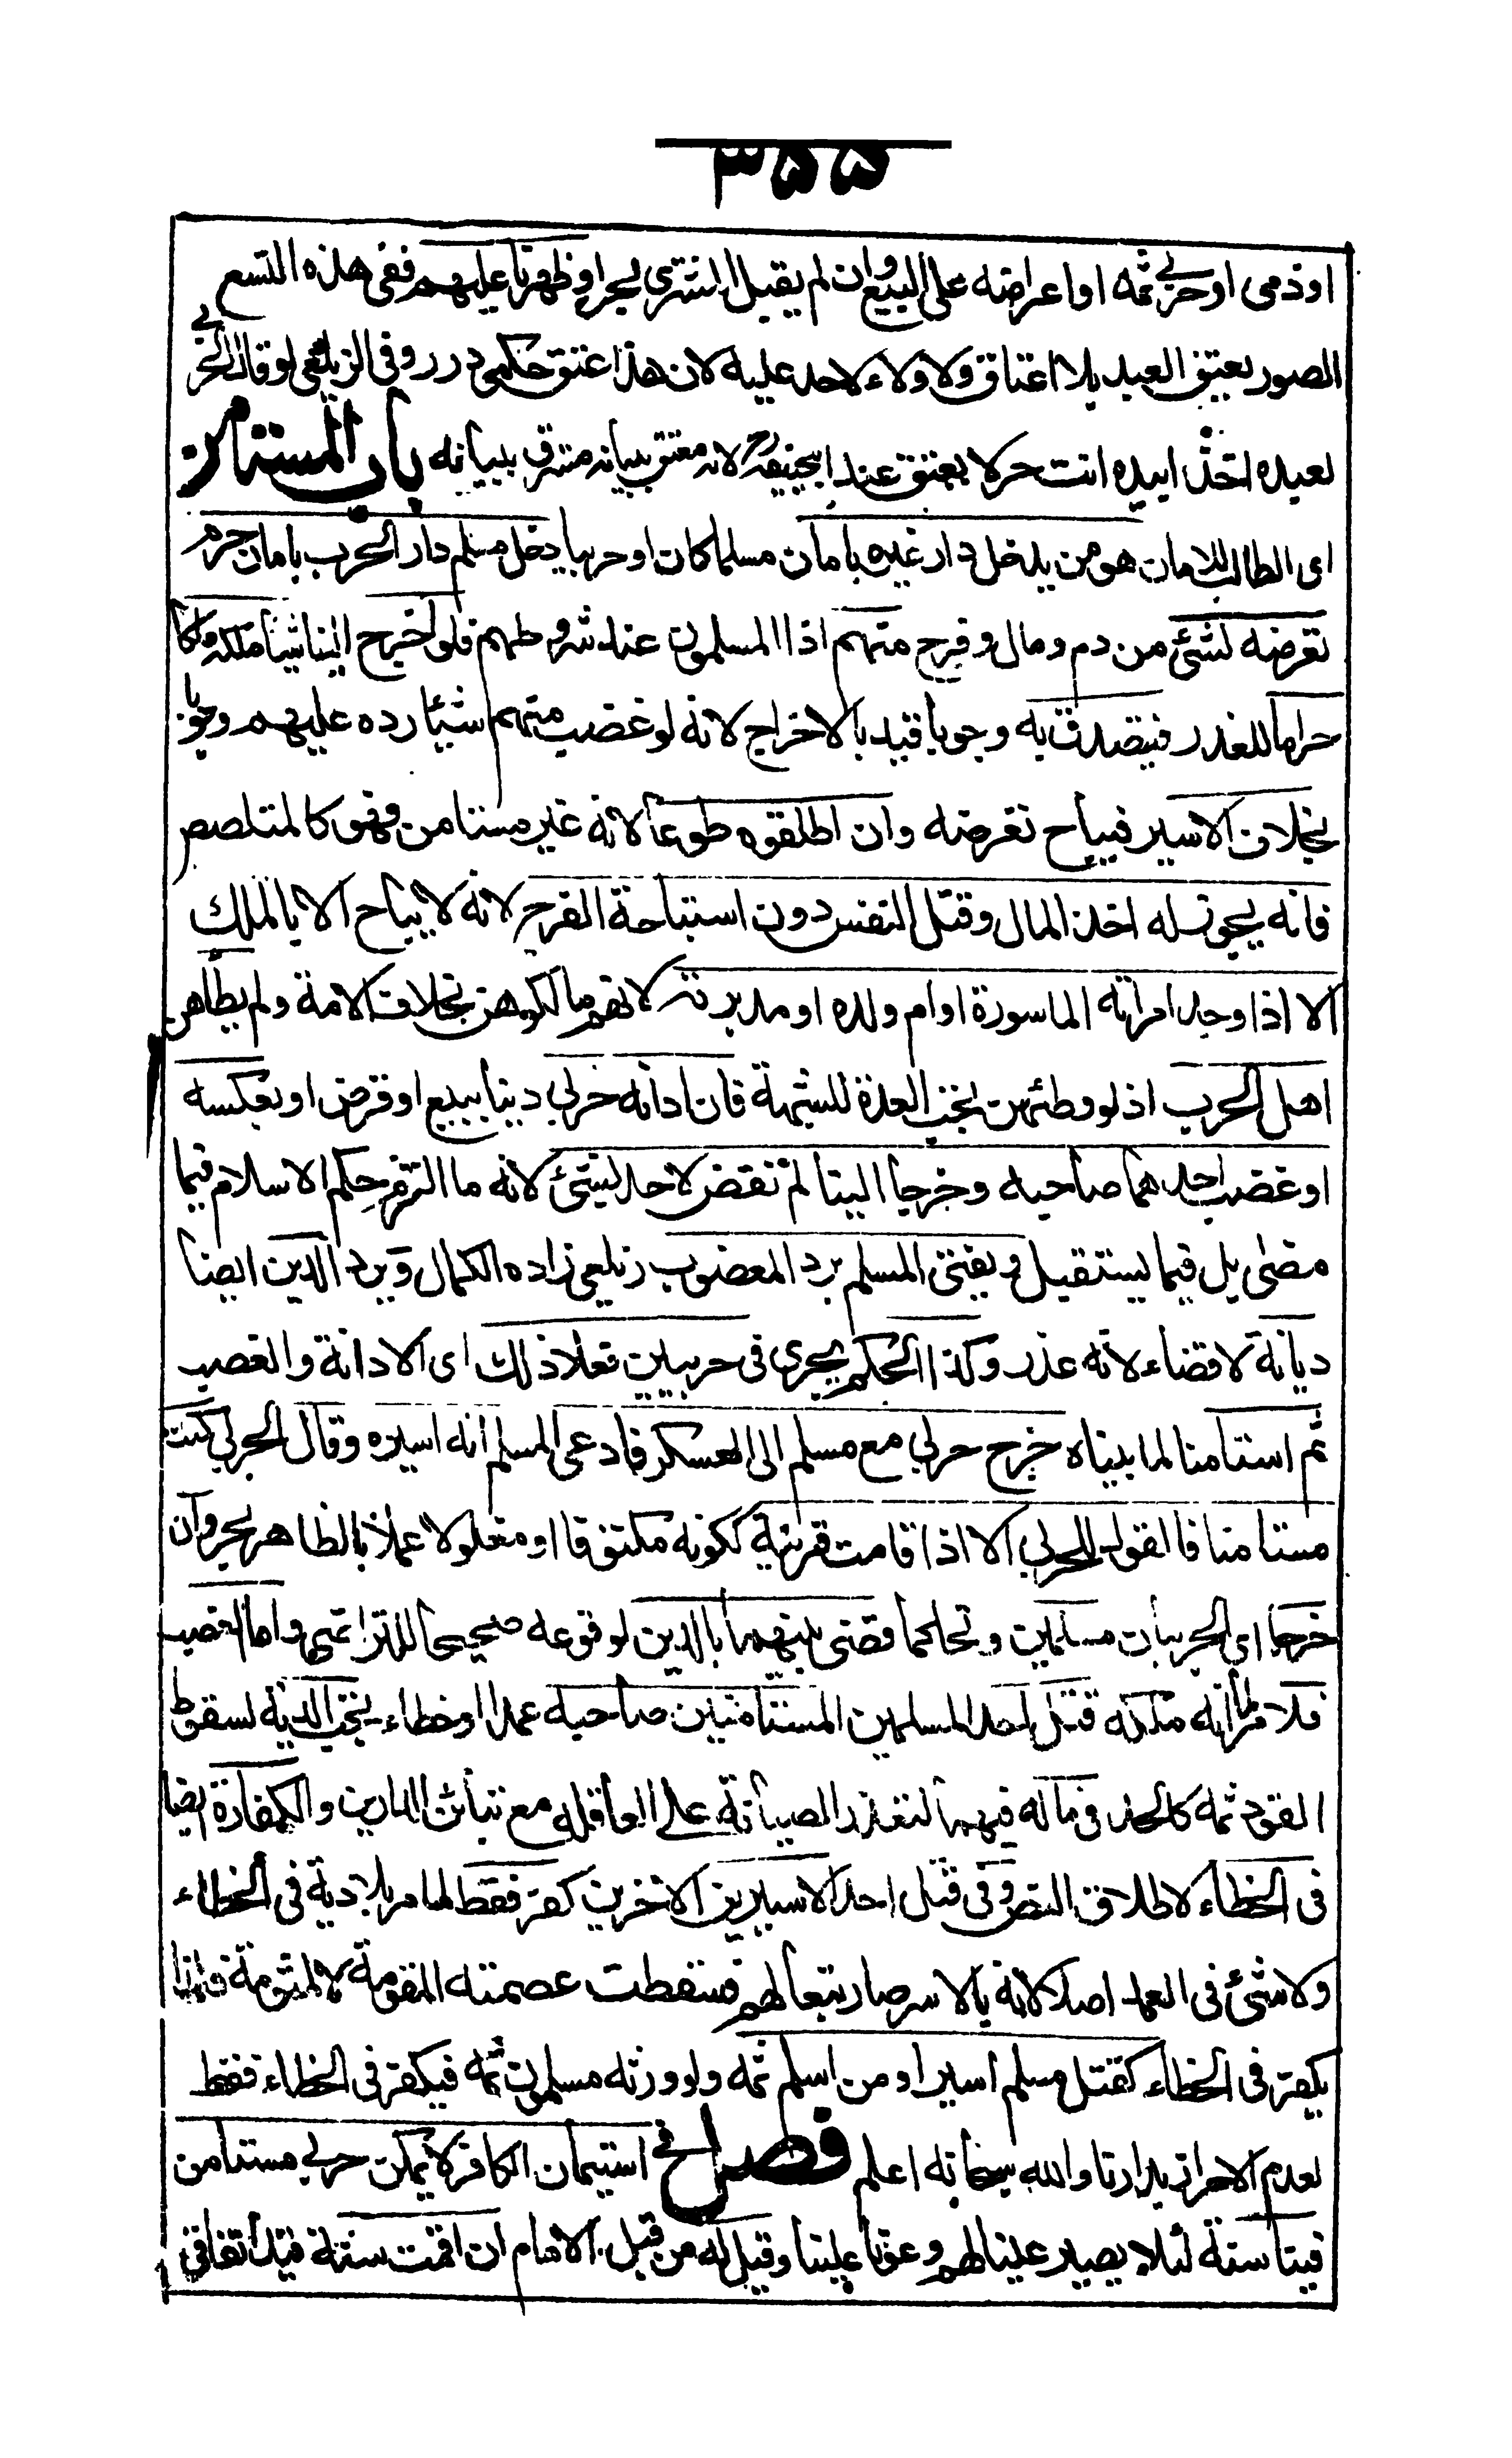 ٣٥٥
او ذمى او حربي ثمه او اعراضه على البيع وان لم يقبل المشترى بحر او ظهرنا عليهم ففى هذه التسع
الصور يعتق العبد بلا اعتاق ولا ولاء لاحد عليه لان هذا عتق حكمى درر وفى الزيلعى لو قال الحربي
لعبده آخذا بيده انت حر لا يعتق عند ابيحنيفة رح لانه معتق ببيانه مسترق ببنانه باب المستامن
اى الطالب للامان هو من يدخل دار غيره بامان مسلما كان او حربيا دخل مسلم دار الحرب بامان حرم
تعرضه لشئ من دم ومال وفرج منهم اذ المسلمون عند شروطهم فلو اخرج الينا شيئا ملكه ملكا
حراما للغدر فيتصدق به وجوبا قيد بالاخراج لانه لو غصب منهم شيئا رده عليهم وجوبا
بخلاف الاسير فيباح تعرضه وان اطلقوه طوعا لانه غير مستامن فهو كالمتلصص
فانه يجوز له اخذ المال وقتل النفس دون استباحة الفرج لانه لا يباح الا بالملك
الا اذا وجد امراته الماسورة او ام ولده او مدبرته لانهم ما ملكوهن بخلاف الامة ولم يطاهن
اهل الحرب اذ لو وطئوهن تجب العدة للشبهة فان ادانه حربي دينا ببيع او قرض او بعكسه
او غصب احدهما صاحبه وخرجا الينا لم نقض لاحد لشئ لانه ما التزم حكم الاسلام فيما
مضى بل فيما يستقبل ويفتى المسلم برد المغصوب زيلعى زاده الكمال وبرد الدين ايضا
ديانة لا قضاء لانه غدر وكذا الحكم يجرى فى حربيين فعلا ذلك اى الادانة والغصب
ثم استامنا لما بيناه خرج حربي مع مسلم الى العسكر فادعى المسلم انه اسيره وقال الحربي كنت
مستامنا فالقول للحربي الا اذا قامت قرينة ككونه مكتوفا او مغلولا عملا بالظاهر بحر وان
خرجا اى الحربيان مسلمين وتحاكما قضى بينهما بالدين لوقوعه صحيحا للتراضى واما الغصب
فلا لما مر انه ملكه قتل احد المسلمين المستامنين صاحبه عمدا او خطاء تجب الدية لسقوط
القود ثمه كالحد فى ماله فيهما لتعذر الصيانة على العاقلة مع تباين الدارين والكفارة ايضا
فى الخطاء لاطلاق النص وفى قتل احد الاسيرين الاخرين كفر فقط لما مر بلا دية فى الخطاء
ولا شئ فى العمد اصلا لانه بالاسر صار تبعا لهم فسقطت عصمته المقومة لا المؤثمة فلذا
يكفر فى الخطاء كقتل مسلم اسيرا او من اسلم ثمه ولو ورثته مسلمون ثمه فيكفر فى الخطاء فقط
لعدم الاحراز بدارنا والله سبحانه اعلم فصل في استيمان الكافر لا يمكن حربي مستامن
فينا سنة لئلا يصير عينا لهم وعونا علينا وقيل له من قبل الامام ان اقمت سنة قيد اتفاقى